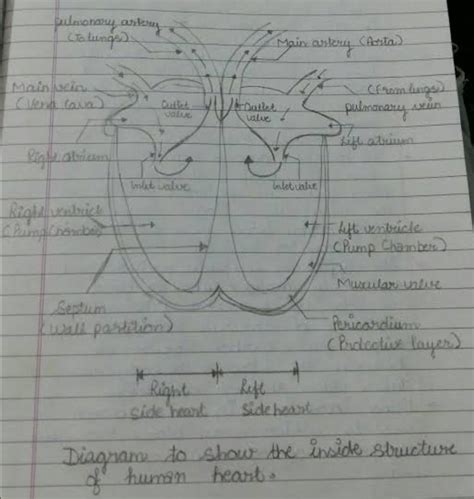 pulmonary artery
(To lungs)
Main artery (Aorta)
Main vein
(Vena Cava)
Outlet
valve
Outlet
valve
(From lungs)
pulmonary vein
Right atrium
Left atrium
Inlet valve
Inlet valve
Right ventricle
(Pump Chamber)
Left ventricle
(Pump Chamber)
Muscular valve
Septum
(Wall partition)
Pericardium
(Protective layer)
Right
side heart
Left
side heart
Diagram to show the inside structure
of human heart.